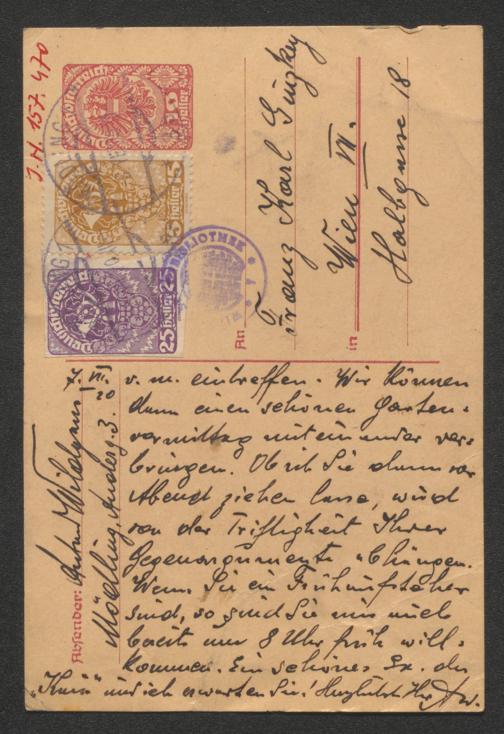 J. N. 157. 470
Deutschösterreich
10 Heller
Deutschösterreich
15 Heller
Deutschösterreich
25 Heller 25
BIBLIOTHEK
An Franz Karl Ginzkey
in Wien VII.
Halbgasse 18
Absender: Anton Wildgans
Mödling, Anderg. 3.
7. VII. 20
v. m. eintreffen. Wir können
dann einen schönen Garten-
vormittag miteinander ver-
bringen. Ob ich Sie dann vor
Abend ziehen lasse, wird
von der Triftigkeit Ihrer
Gegenargumente abhängen.
Wenn Sie ein Frühaufsteher
sind, so sind Sie uns auch
bereits um 8 Uhr früh will-
kommen. Ein schönes Ex. der
und ich erwarten Sie! Herzlichst Ihr AW.